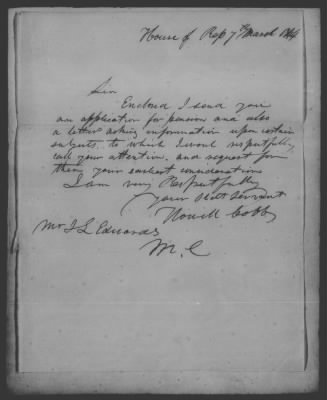 House of Rep 7th March 1844
Sir
Enclosed I send you
an application for pension and also
a letter asking information upon certain
subjects, to which I would respectfully
call your attention, and request for
them your earliest consideration
I am very Respectfully
your Obt Servant
Howell Cobb
Mr J L Edwards
M. C